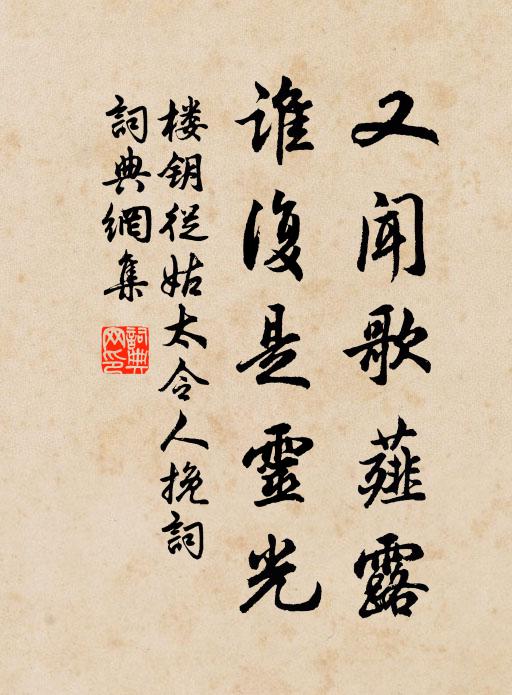 又闻歌薤露
谁复是靈光
楼钥從姑太令人挽詞
詞典網集
詞典网印